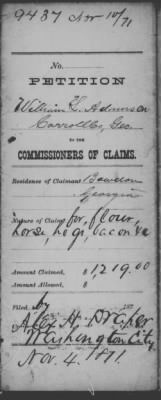 9437 Nov 10/71
No.
PETITION
William L. Adamson
Carroll Co., Geo.
TO THE
COMMISSIONERS OF CLAIMS.
Residence of Claimant Bowdon
Georgia
Nature of Claim for, flour,
horse, hogs, bacon &c
Amount Claimed, $1,219.00
Amount Allowed, $
Filed, by 187
Alex H. Draper
Washington City,
Nov. 4. 1871.